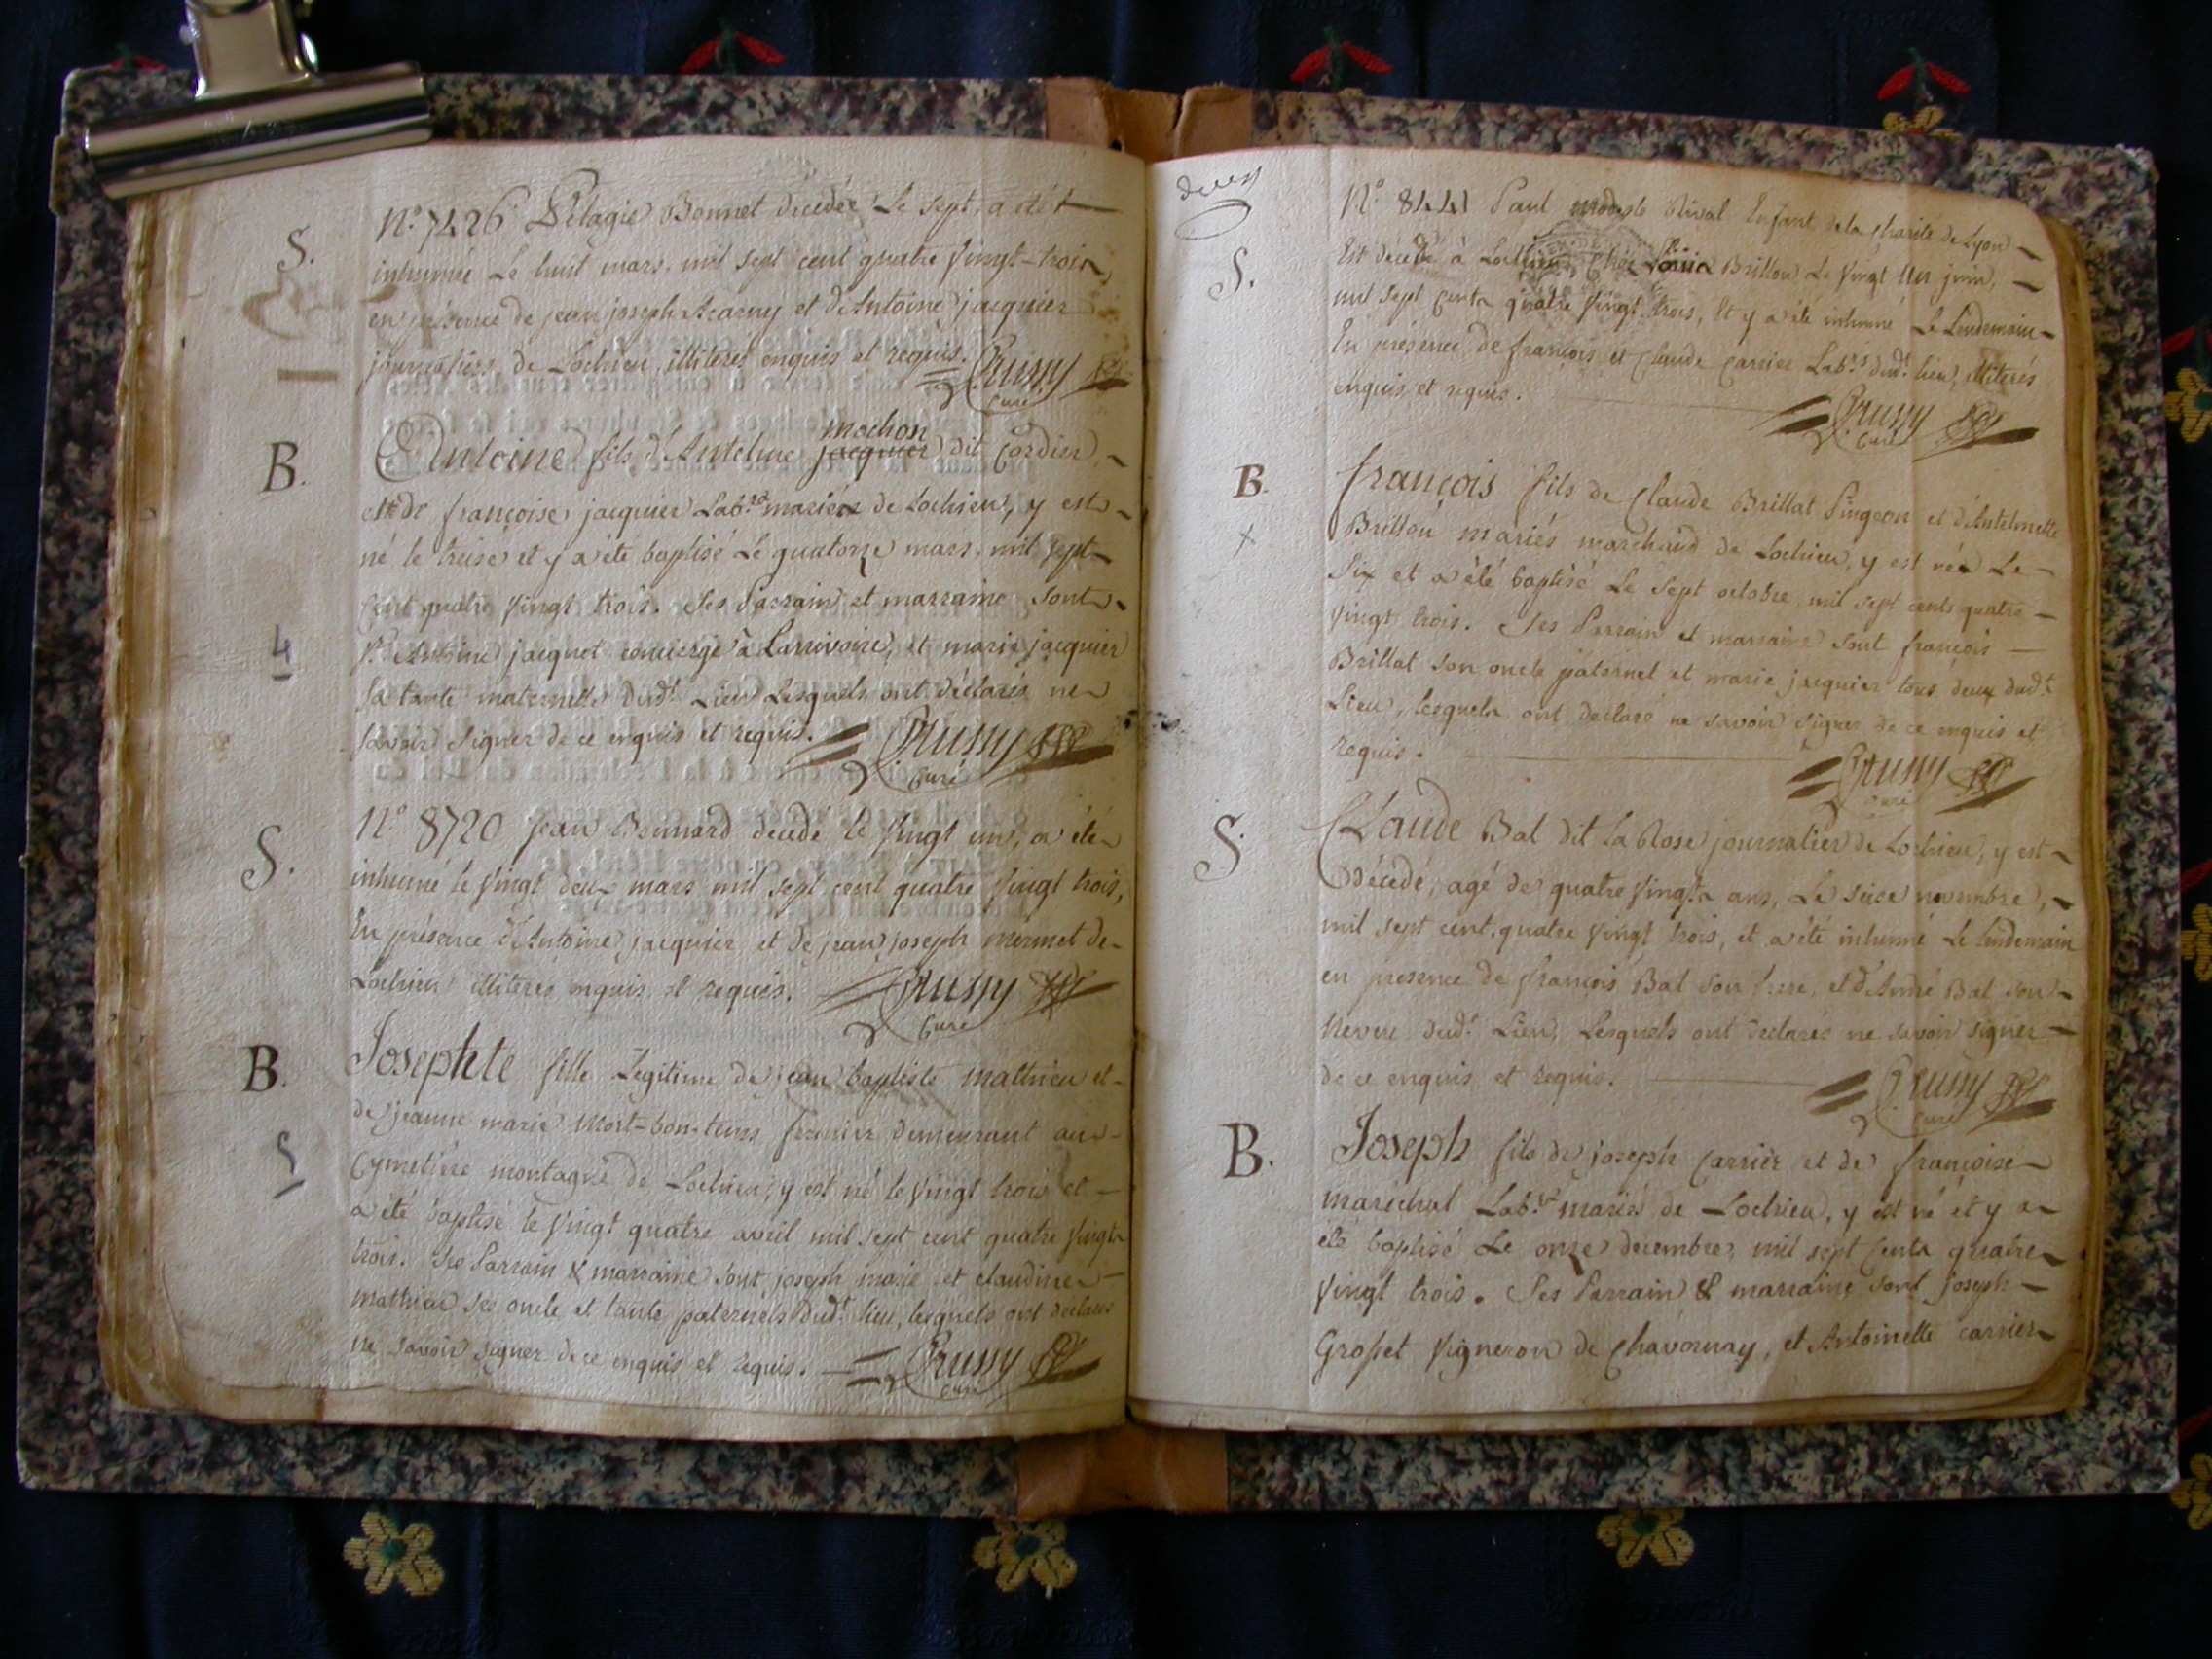 S.
N.° 7426 Pelagie Bonnet décédée le sept, a été
inhumée Le huit mars mil sept cent quatre vingt-trois
en présence de jean joseph et d'Antoine jacquier
journaliers de Lochieu, illiteres enquis et requis. Crussy
Curé
B.
mochon
Antoine fils d'Antelme jacquier dit Cordier
et de françoise jacquier Lab.rs mariés de Lochieu, y est
né le treise et y a été baptisé Le quatorze mars mil sept
Cent quatre vingt trois. Ses Parrain et marraine sont
4
S.r Antoine jacquet concierge à Larrivoire, et marie jacquier
sa tante maternelle dud.t Lieu Lesquels ont déclarés ne
savoir signer de ce enquis et requis. Crussy
Curé
S.
N.° 8720 jean Bonnard décédé le vingt un, a été
inhumé le vingt deux mars mil sept cent quatre vingt trois,
En présence d'Antoine jacquier et de jean joseph mermet de
Lochieu illiteres enquis et requis. Crussy
Curé
B.
Josephte fille Legitime de jean baptiste mathieu et
de jeanne marie Mort-bon-tems fermier demeurant au
5
Cymetière montagne de Lochieu, y est né le vingt trois et
a été baptisé le vingt quatre avril mil sept cent quatre vingt
trois. Ses Parrain & marraine sont joseph marie et claudine
mathieu ses oncle et tante paternels dud.t lieu, lesquels ont déclaré
ne savoir signer de ce enquis et requis. Crussy
Curé
deux
S.
N.° 8441 Paul modeste Rival Enfant de la Charité de Lyon
Est décédé à Lochieu, Chés Brillou Le vingt un juin,
mil sept cents quatre vingt trois, Et y a été inhumé Le Lendemain
En présence de françois et Claude Carrier Lab.rs dud.t lieu, illiterés
enquis et requis.
Crussy
Curé
B.
x
françois fils de Claude Brillat Singeon et d'Antelmette
Brillou mariés marchand de Lochieu, y est né Le
Six et a été baptisé Le sept octobre mil sept cents quatre
vingt trois. Ses Parrain et marraine sont françois
Brillat son oncle paternel et marie jacquier tous deux dud.t
Lieu, lesquels ont déclaré ne savoir signer de ce enquis et
requis.
Crussy
Curé
S.
Claude Bal dit la Rose journalier de Lochieu, y est
Décédé, agé de quatre vingts ans, Le seise novembre,
mil sept cent quatre vingt trois, et a été inhumé Le lendemain
en presence de françois Bal son frere, et d'André Bal son
Neveu dud.t Lieu, Lesquels ont déclarés ne savoir signer
de ce enquis et requis.
Crussy
Curé
B.
Joseph fils de joseph Carrier et de françoise
maréchal Lab.rs mariés de Lochieu, y est né et y a
été baptisé Le onze decembre, mil sept Cents quatre
vingt trois. Ses Parrain & marraine sont joseph
Grosset vigneron de Chavornay, et Antoinette carrier